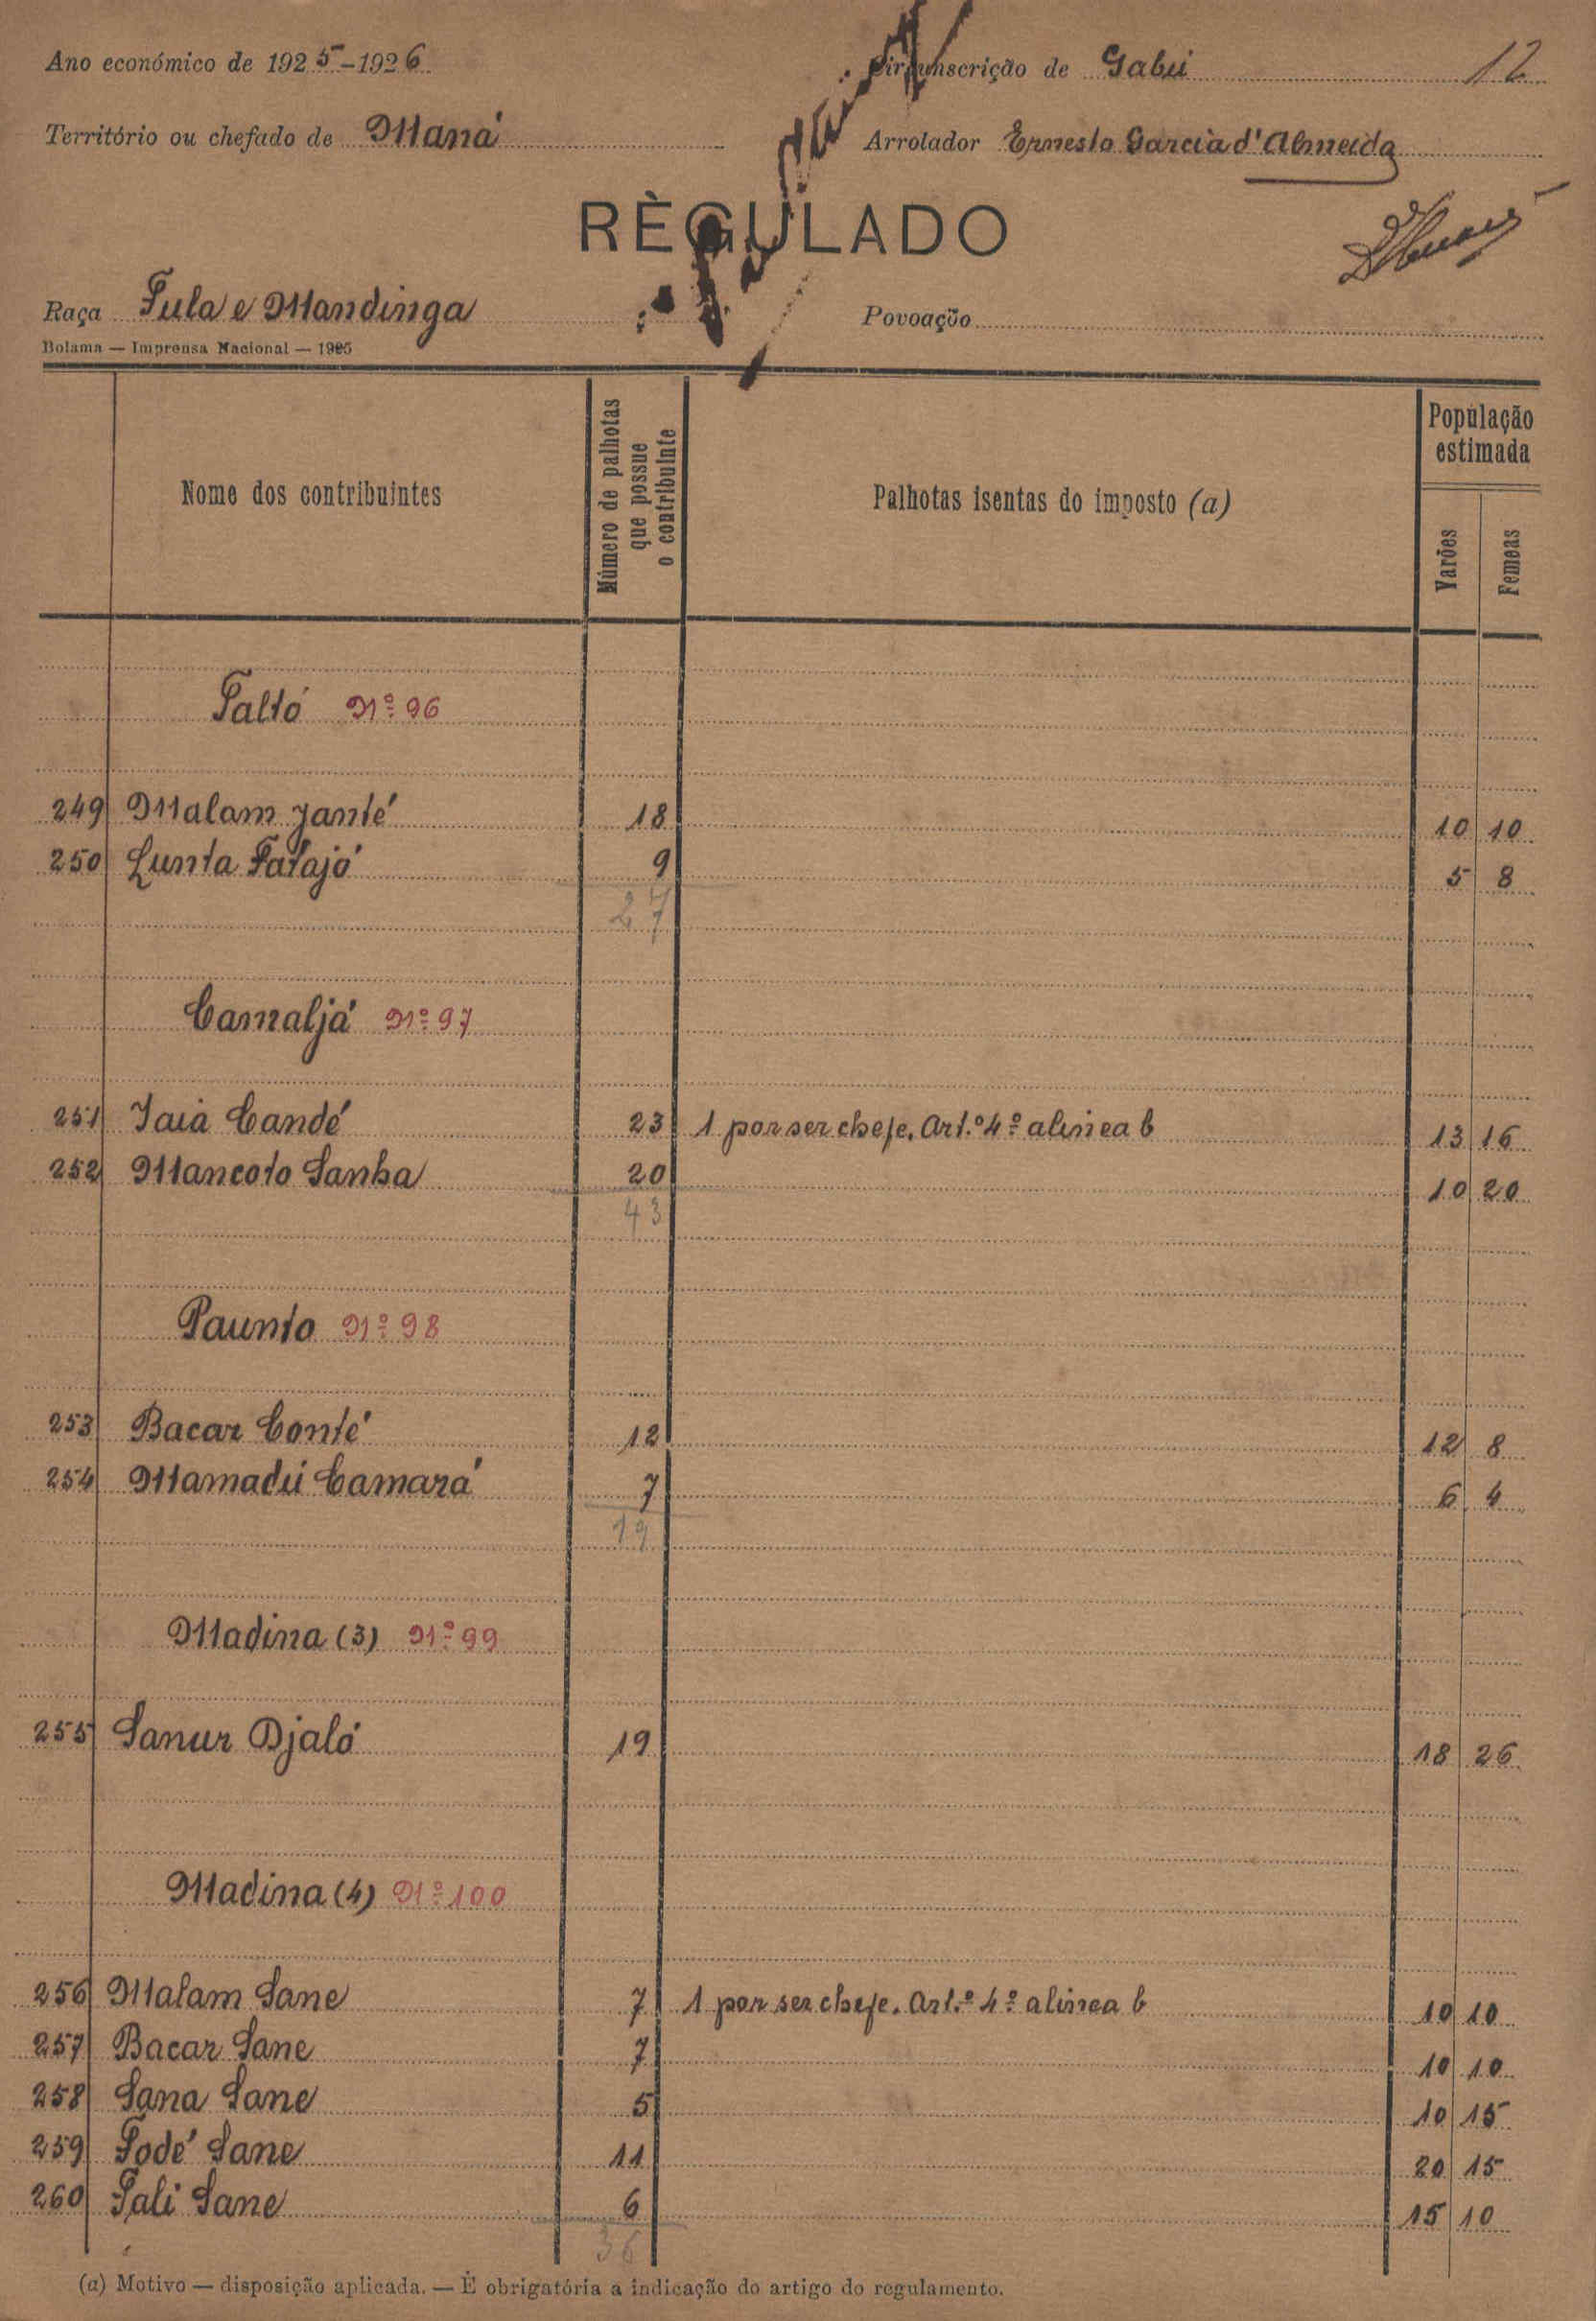 Ano económico de 1925-1926 Circunscrição de Gabú 12
Território ou chefado de Maná Arrolador Ernesto Garcia d'Almeida
RÈGULADO
Raça Fula e Mandinga Povoação
Bolama — Imprensa Nacional — 1925
Nome dos contribuintes
Número de palhotas que possue o contribuinte
Palhotas isentas do imposto (a)
População estimada
Varões
Femeas
Faltó Nº 96
249 Malam Janté 18 10 10
250 Lunta Fatajó 9 5 8
27
Camaljá Nº 97
251 Iaiá Candé 23 1 por ser chefe. Art.º 4º alinea b 13 16
252 Mancoto Sanha 20 10 20
43
Paunto Nº 98
253 Bacar Conté 12 12 8
254 Mamadú Camará 7 6 4
19
Madina (3) Nº 99
255 Sanur Djaló 19 18 26
Madina (4) Nº 100
256 Malam Sane 7 1 por ser chefe. Art.º 4º alinea b 10 10
257 Bacar Sane 7 10 10
258 Sana Sane 5 10 15
259 Fodé Sane 11 20 15
260 Fali Sane 6 15 10
36
(a) Motivo — disposição aplicada. — É obrigatória a indicação do artigo do regulamento.